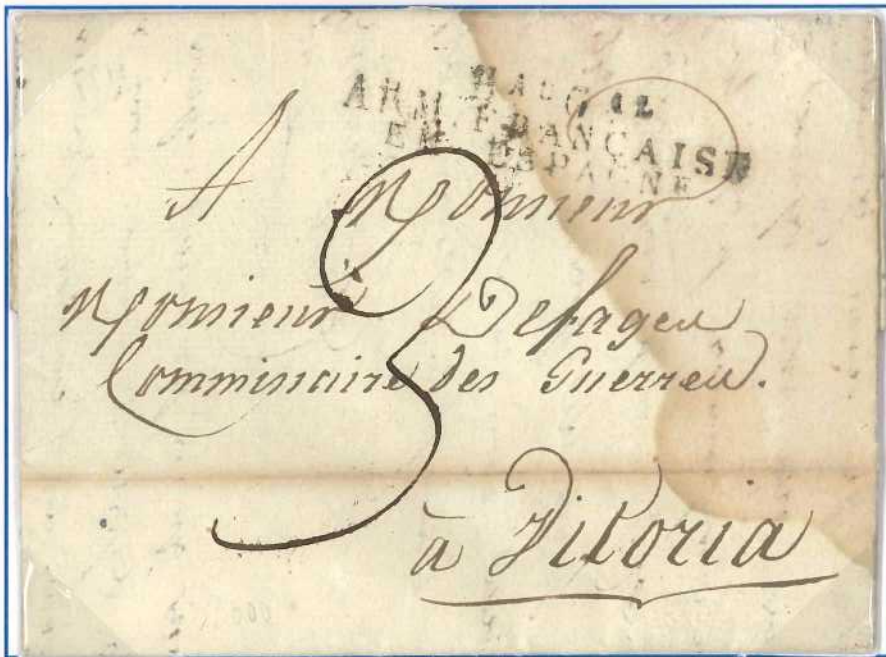 12
ARM. FRANÇAISE
EN ESPAGNE
A Monsieur
3
Monsieur Defages
Commissaire des Guerres.
à Vitoria